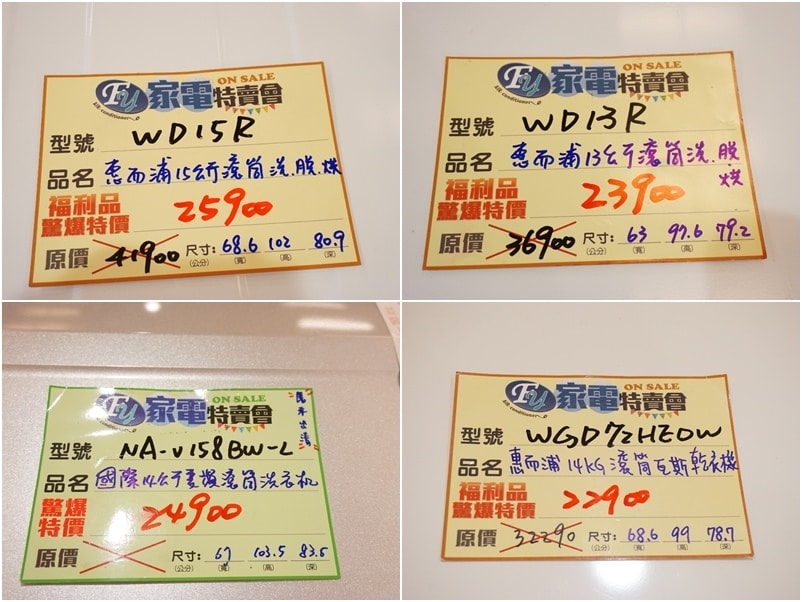 Fu 家電特賣會 ON SALE
Air conditioner
型號 WD15R
品名 惠而浦15公斤滾筒洗.脫.烘
福利品
驚爆特價 25900
原價 41900 尺寸: 68.6 102 80.9
(公分) (寬) (高) (深)
Fu 家電特賣會 ON SALE
Air conditioner
型號 WD13R
品名 惠而浦13公斤滾筒洗.脫.烘
福利品
驚爆特價 23900
原價 36900 尺寸: 63 97.6 79.2
(公分) (寬) (高) (深)
Fu 家電特賣會 ON SALE
型號 NA-V158BW-L
品名 國際14公斤變頻滾筒洗衣机
驚爆
特價 24900
原價 尺寸: 67 103.5 83.5
(公分) (寬) (高) (深)
Fu 家電特賣會 ON SALE
Air conditioner
型號 WGD72HEDW
品名 惠而浦 14KG滾筒瓦斯乾衣機
福利品
驚爆特價 22900
原價 32290 尺寸: 68.6 99 78.7
(公分) (寬) (高) (深)